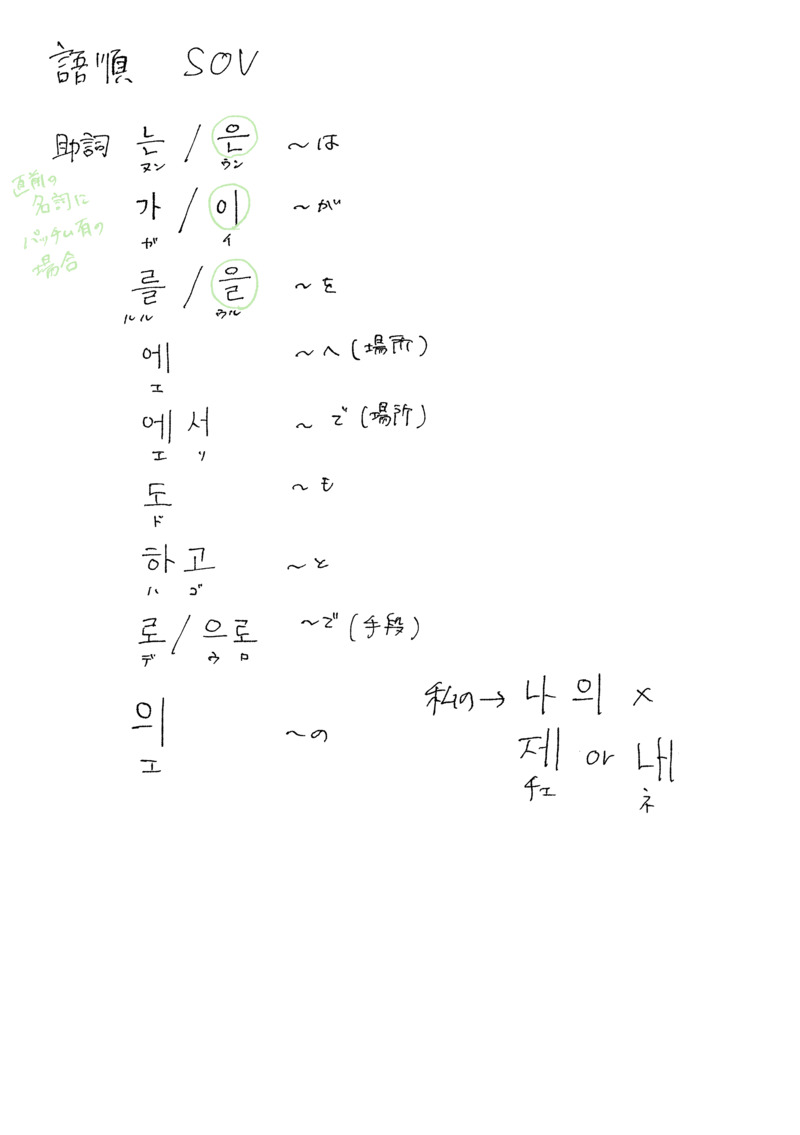 語順 SOV
助詞 는 / 은 ~は
ヌン ウン
直前の
名詞に
パッチム有の
場合
가 / 이 ~が
ガ イ
를 / 을 ~を
ルル ウル
에 ~へ(場所)
エ
에서 ~で(場所)
エ ソ
도 ~も
ド
하고 ~と
ハ ゴ
로 / 으로 ~で(手段)
デ ウ ロ
의 ~の
エ
私の→ 나의 ×
제 or 내
チェ ネ